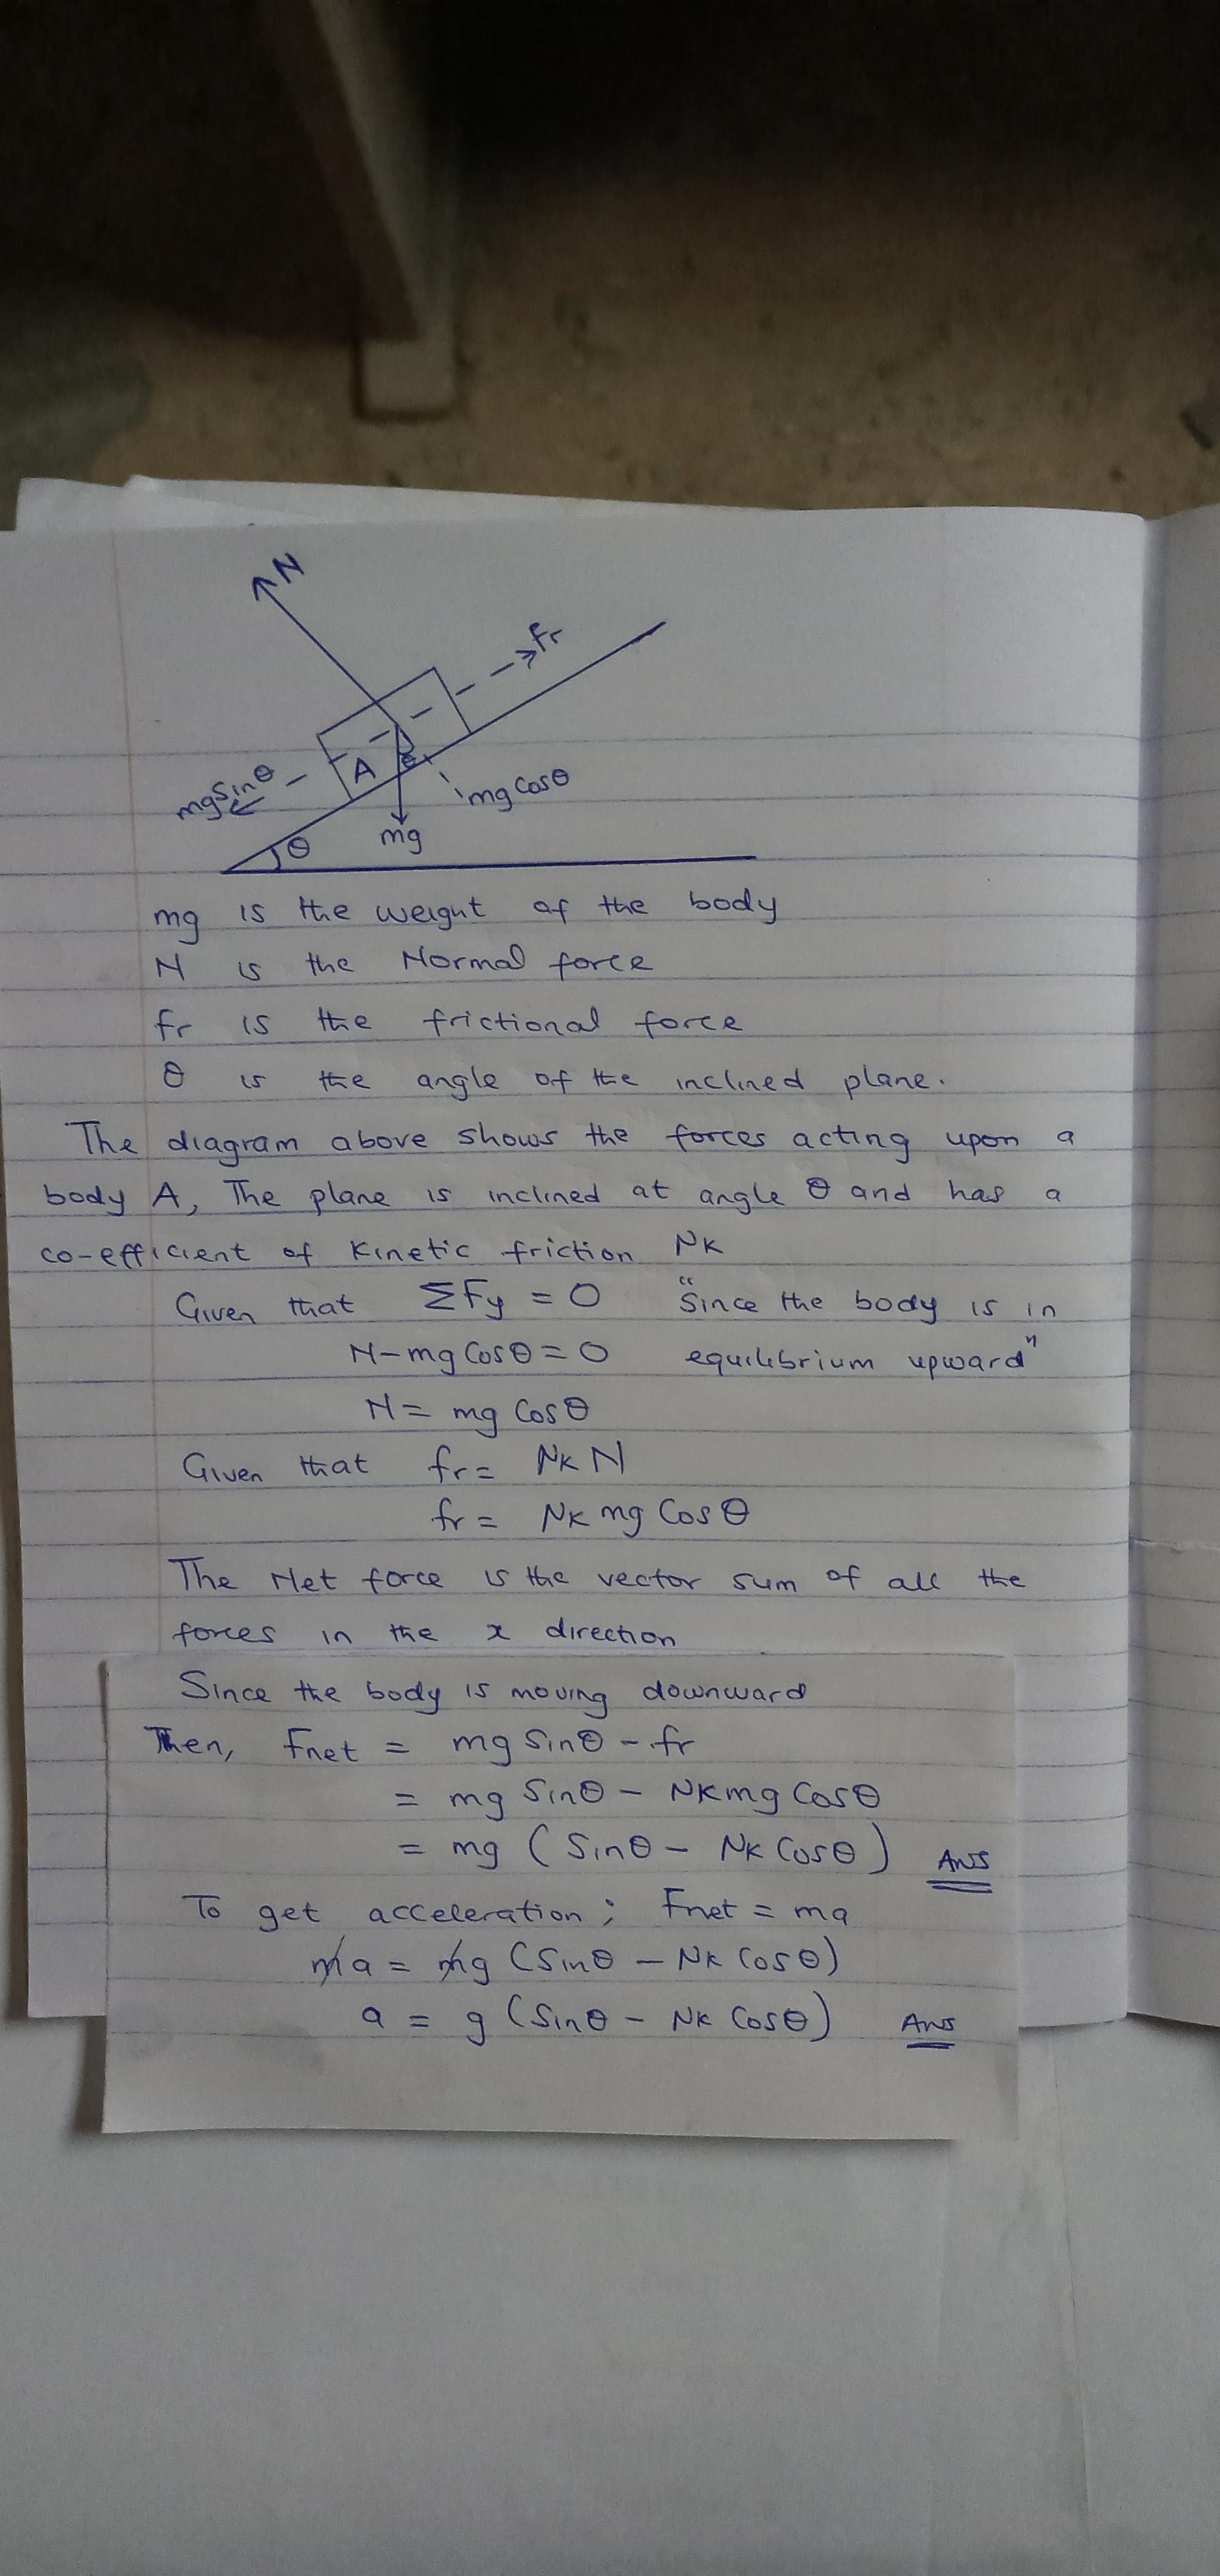 N
fr
A
θ
mgSinθ
mgCosθ
θ
mg
mg is the weight of the body
N is the Normal force
fr is the frictional force
θ is the angle of the inclined plane.
The diagram above shows the forces acting upon a
body A, The plane is inclined at angle θ and has a
co-efficient of kinetic friction μk
Given that ΣFy = 0 "Since the body is in
N-mgCosθ=0 equilibrium upward"
N= mg Cosθ
Given that fr= μk N
fr = μk mg Cosθ
The Net force is the vector sum of all the
forces in the x direction
Since the body is moving downward
Then, Fnet = mg Sinθ - fr
= mg Sinθ - μkmg Cosθ
= mg (Sinθ - μk Cosθ) ANS
To get acceleration; Fnet = ma
ma = mg (Sinθ - μk Cosθ)
a = g (Sinθ - μk Cosθ) ANS